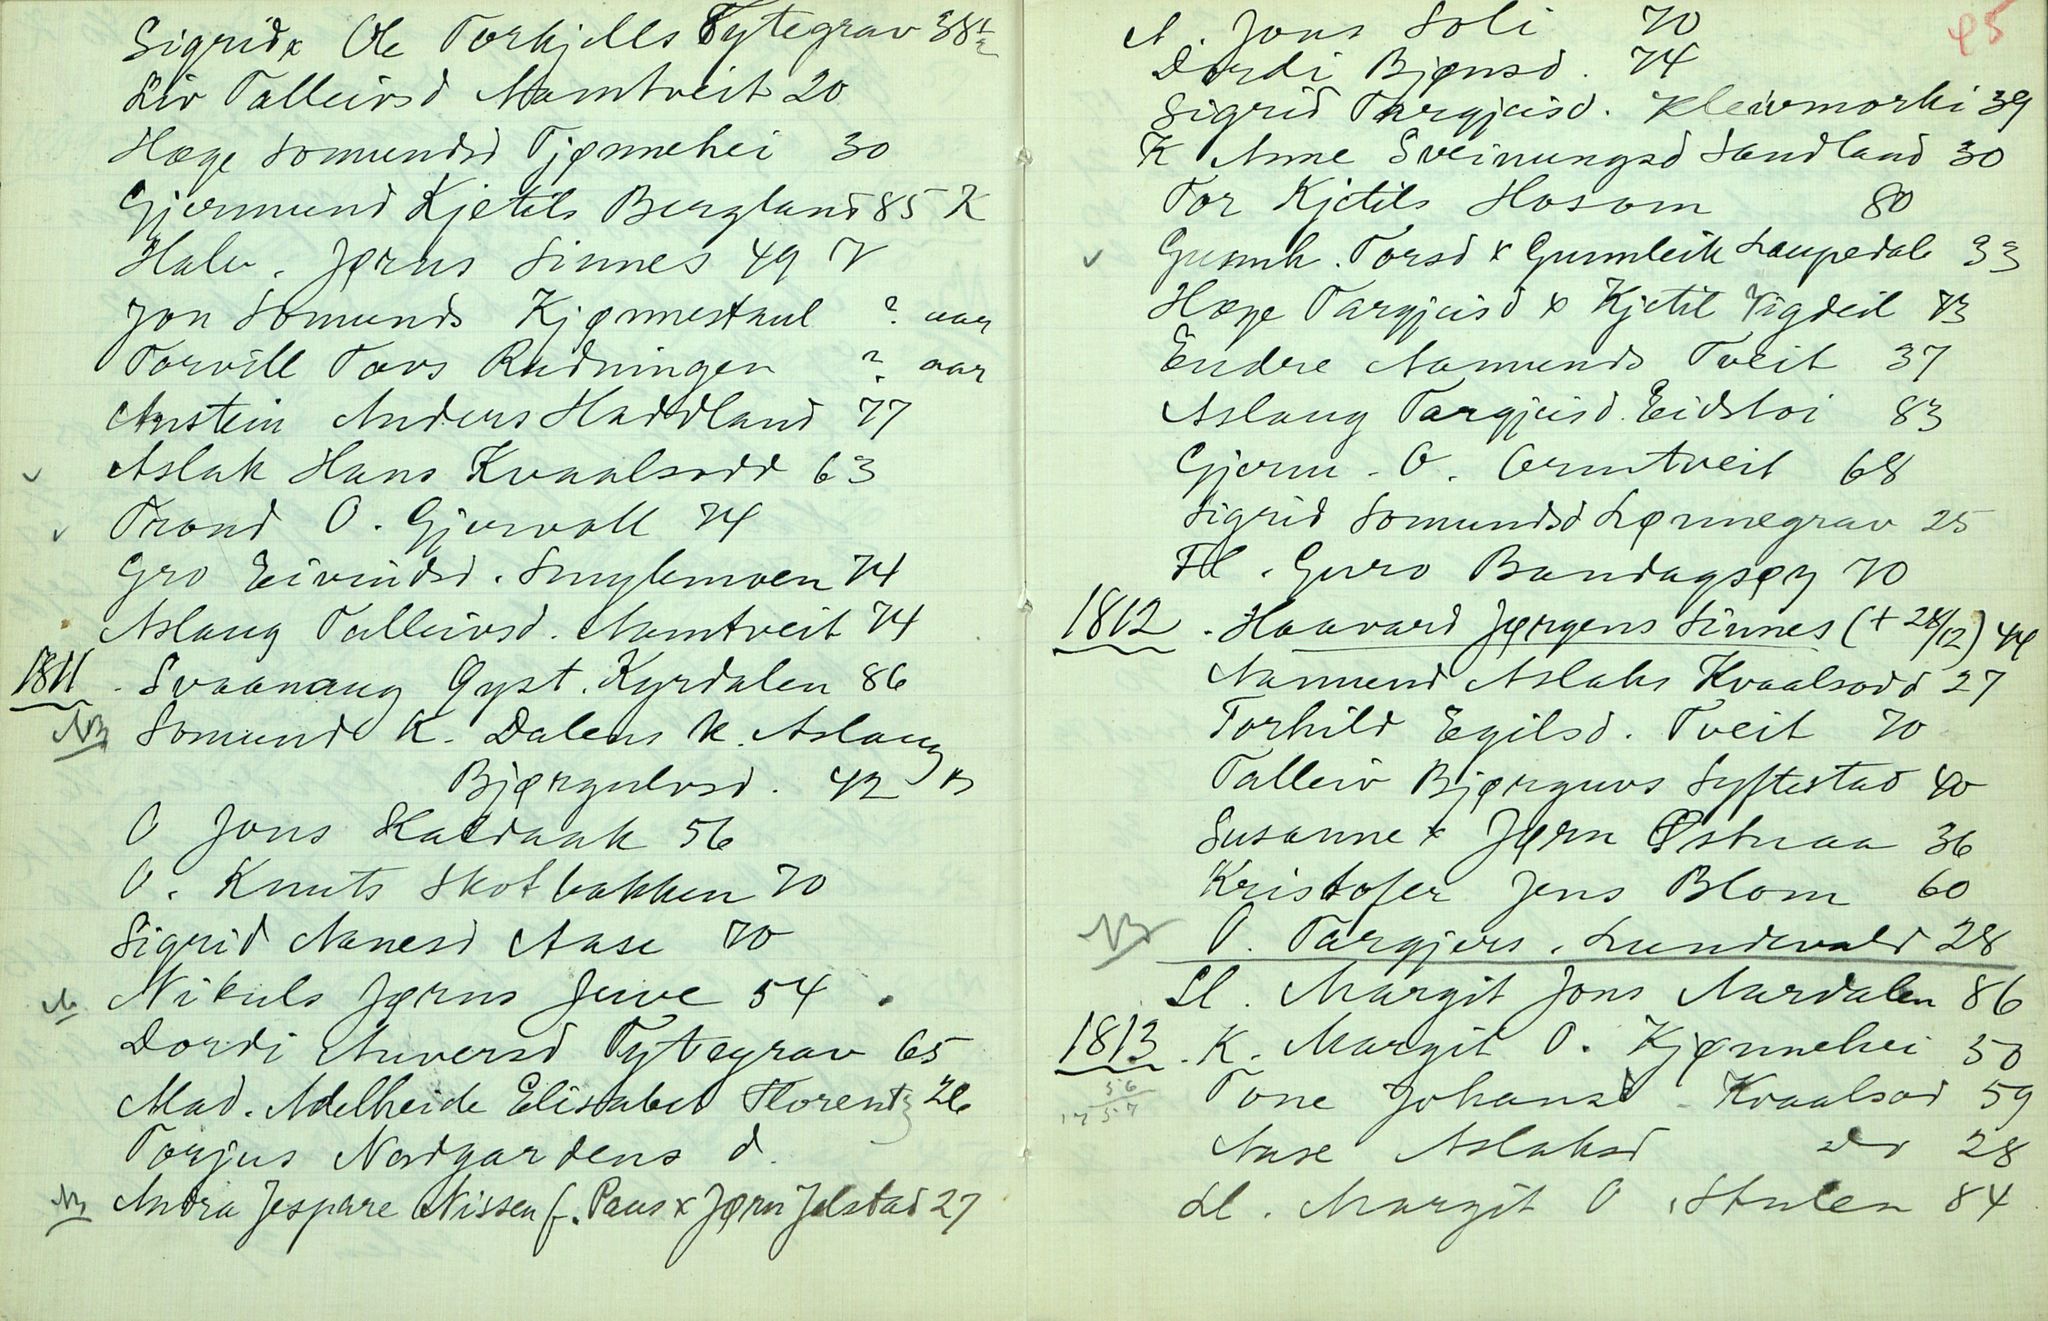 Sigrid x Ole Torkjells Tytegrav 38½
Liv Talleivsd Mamtveit 20
Hæge Somundsd Tjønnehei 30
Gjermund Kjetils Bergland 85 K
Halv. Jørns Sinnes 49 V
Jon Somunds Kjønnestaul ? aar
Torvill Tovs Rudningen ? aar
Anstein Anders Haddland 77
Aslak Hans Kvaalsodd 63
Trond O. Gjervoll 74
Gro Eivindsd. Smylemoen 74
Aslaug Talleivsd. Mamtveit 74
1811 . Svaanaug Øyst. Kyrdalen 86
NB Somund K. Dalens k. Aslaug
Bjørgulvsd. 42
O Jons Kaldaak 56
O. Knuts Skotbakken 70
Sigrid Aanesd Aase 70
Nikuls Jørns Juve 54
Dordi Auversd Tytegrav 65
Mad. Adelheide Elisabet Florentz 26
Torjus Nordgardens d.
NB Andra Jespare Nissen f. Paus x Jørn Jelstad 27
95
A. Jons Soli 70
Dordi Bjønsd. 74
Sigrid Targjeisd. Kleivmorki 39
K Anne Sveinungsd Sandland 30
Tor Kjetils Hosom 80
Gunnh. Torsd x Gunnleik Laupedal 33
Hæge Targjeisd x Kjetil Vigdeil 73
Endre Aamunds Tveit 37
Aslaug Targjeisd. Eidstoi 83
Gjerm. O. Ormtveit 68
Sigrid Somundsd Lønnegrav 25
Fl. Guro Bandagsøy 70
1812 . Haavard Jørgens Sinnes (+ 28/12) 44
Aamund Aslaks Kvaalsodd 27
Torhild Egilsd. Tveit 70
Talleiv Bjørguvs Syftestad 40
Susanne x Jørn Østraa 36
Kristofer Jens Blom 60
NB O. Targjers. Lundevald 28
Sl. Margit Jons Aardalen 86
1813 . K. Margit O. Kjønnehei 50
Tone Johansd. Kvaalsod 59
56
1757
Aase Aslaksd do 28
Sl. Margit O. Stulen 84